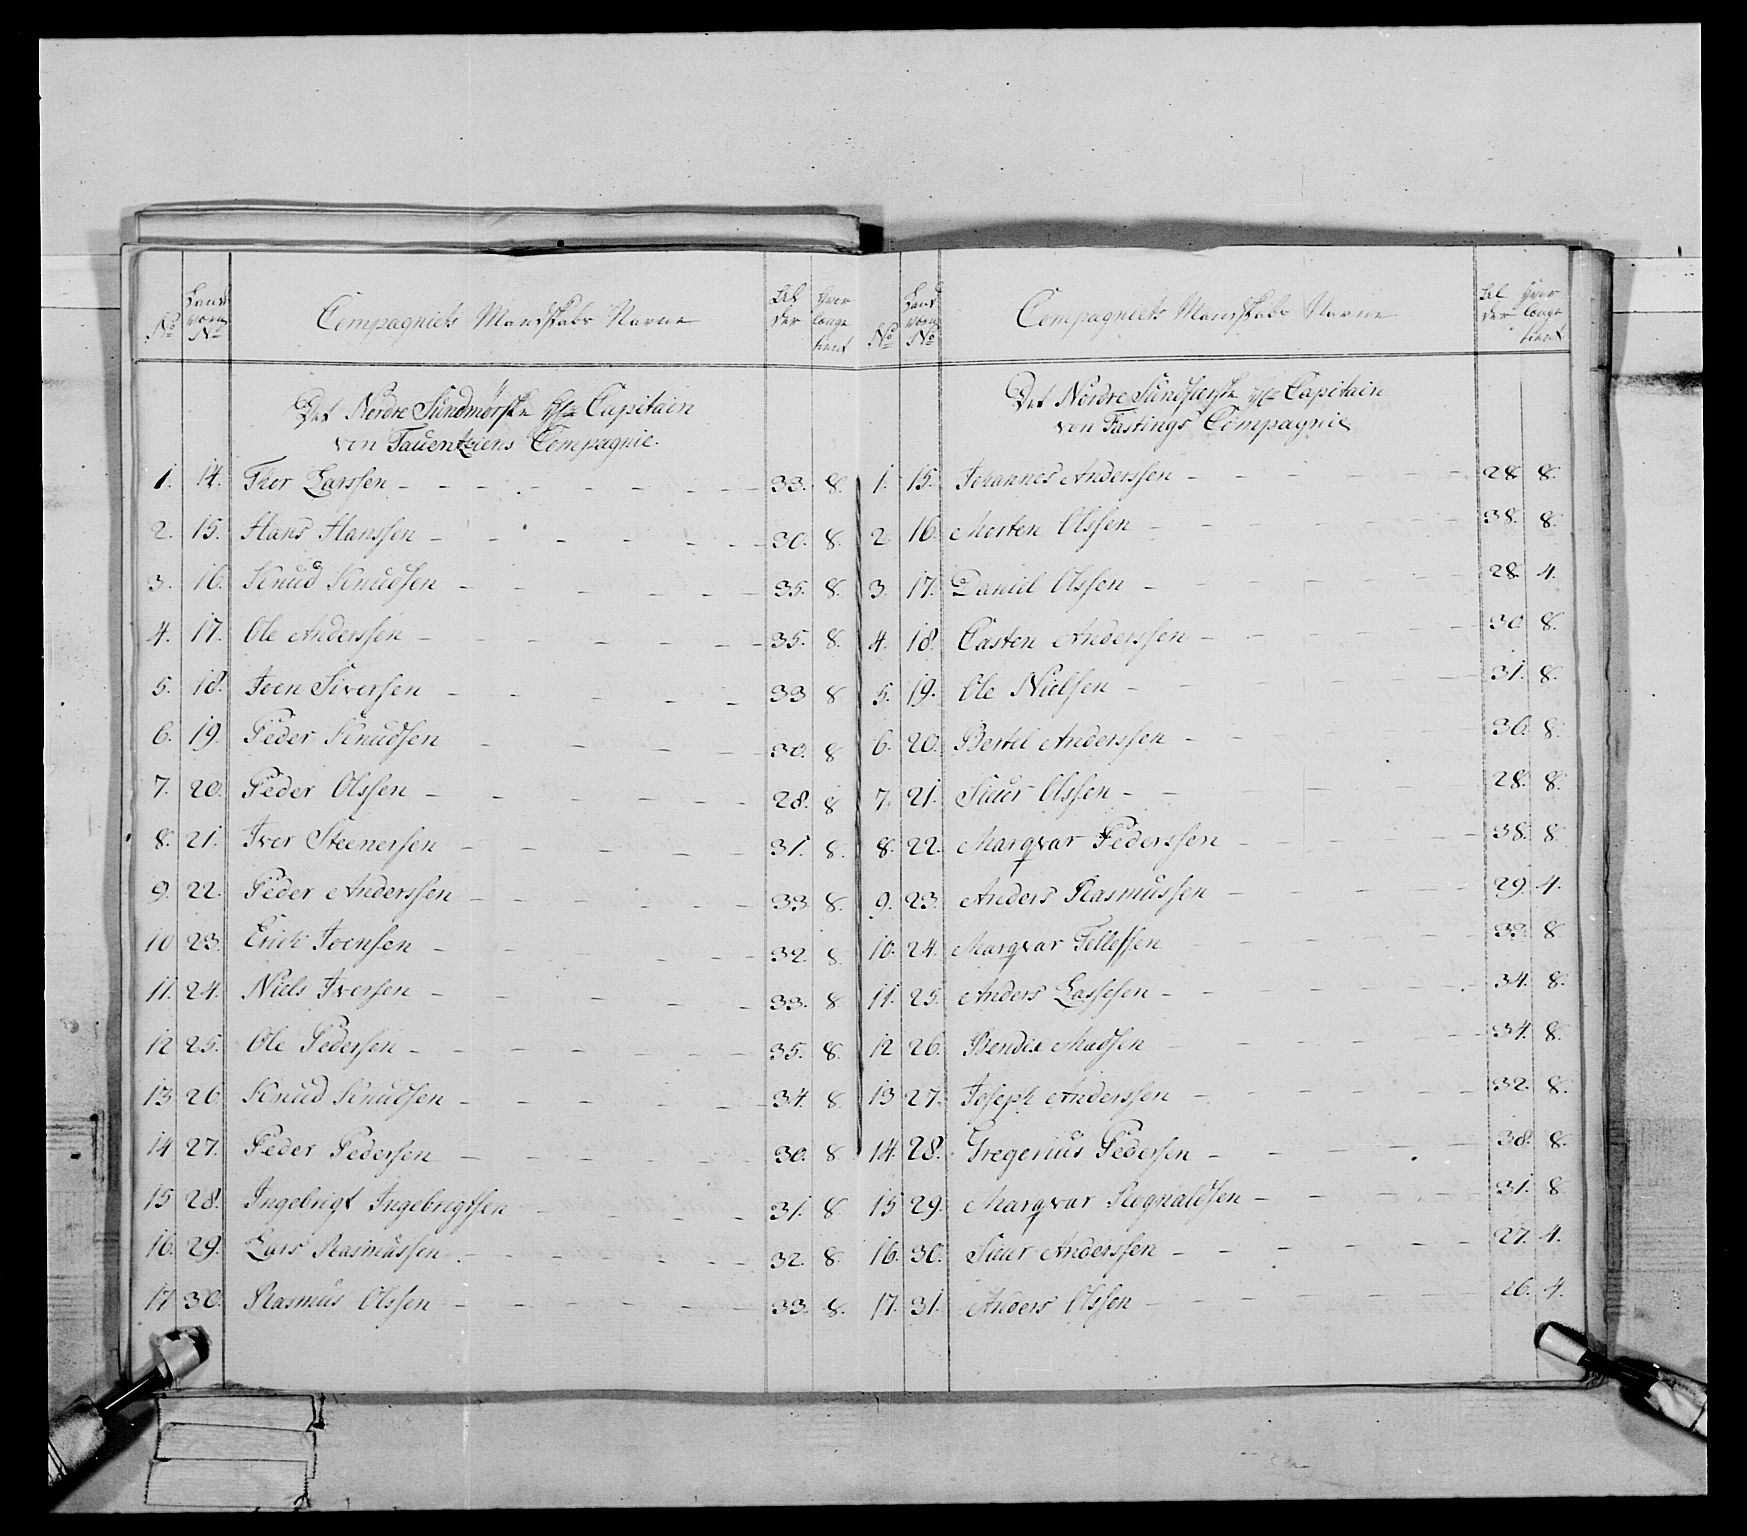 No Land værn No Compagniets Mandskabs Navne Al der Hvor længe tient
Det Nordre Sundmørske Hr Capitain
von Tauentziens Compagnie.
1. 14. Thor Larssen - 33. 8.
2. 15. Hans Hanssen - 30. 8.
3. 16. Knud Knudsen - 35. 8.
4. 17. Ole Anderssen - 35. 8.
5. 18. Iven Siversen - 33 8
6. 19. Peder Knudsen - 30. 8
7. 20. Peder Olssen - 28. 8
8. 21. Iver Steenersen - 31. 8.
9. 22. Peder Anderssen - 33. 8.
10 23. Erick Ivensen - 32. 8.
11. 24. Niels Iversen - 33. 8
12 25. Ole Pedersen - 35. 8.
13 26. Knud Knudsen - 34. 8.
14 27. Peder Pedersen - 30. 8
15 28. Ingebrigt Ingebrigtsen - 31. 8
16. 29. Lars Rasmussen - 32. 8.
17 30. Rasmus Olssen - 33. 8.
No Land værn No Compagniets Mandskabs Navne Al der Hvor længe tient
Det Nordre Hr Capitain
von Fastings Compagnie
1. 15. Johannes Anderssen - 28. 8.
2. 16. Morten Olssen - 38. 8.
3. 17. Daniel Olssen - 28. 4.
4. 18. Casten Anderssen - 30. 8.
5. 19. Ole Nielsen - 31. 8.
6. 20. Bertel Anderssen - 36. 8.
7. 21. Siur Olssen - 28. 8.
8. 22. Marqvar Pederssen - 38. 8.
9. 23. Anders Rasmussen - 29. 4.
10. 24. Marqvar Tellefsen - 33. 8.
11. 25. Anders Lassesen - 34. 8.
12 26. Bendix Madsen - 34. 8.
13 27. Joseph Anderssen - 32. 8.
14. 28. Gregerius Pedersen - 38. 8.
15 29. Marqvar Rognaldsen - 31. 8
16. 30. Siur Anderssen - 27. 4.
17. 31. Anders Olssen - 26. 4.